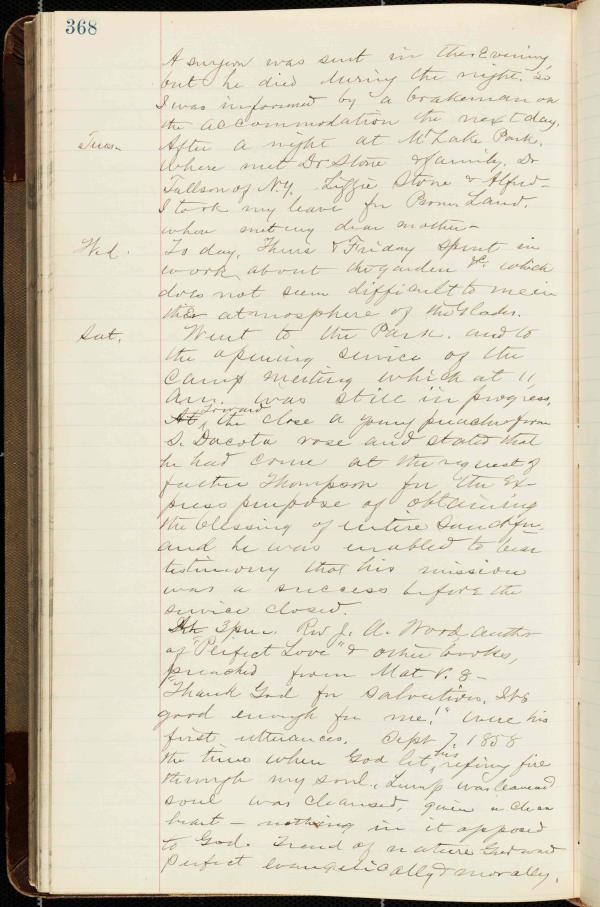 368
A surgeon was sent in the Evening,
but he died during the night. so
I was informed by a brakeman on
the accommodation the next day.
Tues. After a night at Mt Lake Park,
where met Dr Stone & family, Dr
Tullson of N.Y. Lizzie Stone & Alfred—
I took my leave for Land.
when met my dear mother—
Wed. To day, Thurs & Friday spent in
work about the garden &c. which
does not seem difficult to me in
the atmosphere of the Glades.
Sat. Went to the Park. and to
the opening service of the
Camp meeting which at 11,
a.m. was still in progress.
At Toward the close a young preacher from
S. Dacota rose and stated that
he had come at the request of
father Thompson for the Ex-
press purpose of obtaining
the blessing of entire
and he was enabled to bear
testimony that his mission
was a success before the
service closed.
At 3 p.m. Rev J. A. Wood, author
of "Perfect Love" & other books,
preached from Mat V. 8—
"Thank God for Salvation. It's
good enough for me!" were his
first utterances. Sept 7, 1858
the time when God let his refining fire
through my soul. Lump was leavened
soul was cleansed, given a clean
heart — nothing in it opposed
to God. Trend of nature Godward
Perfect evangelically & morally.